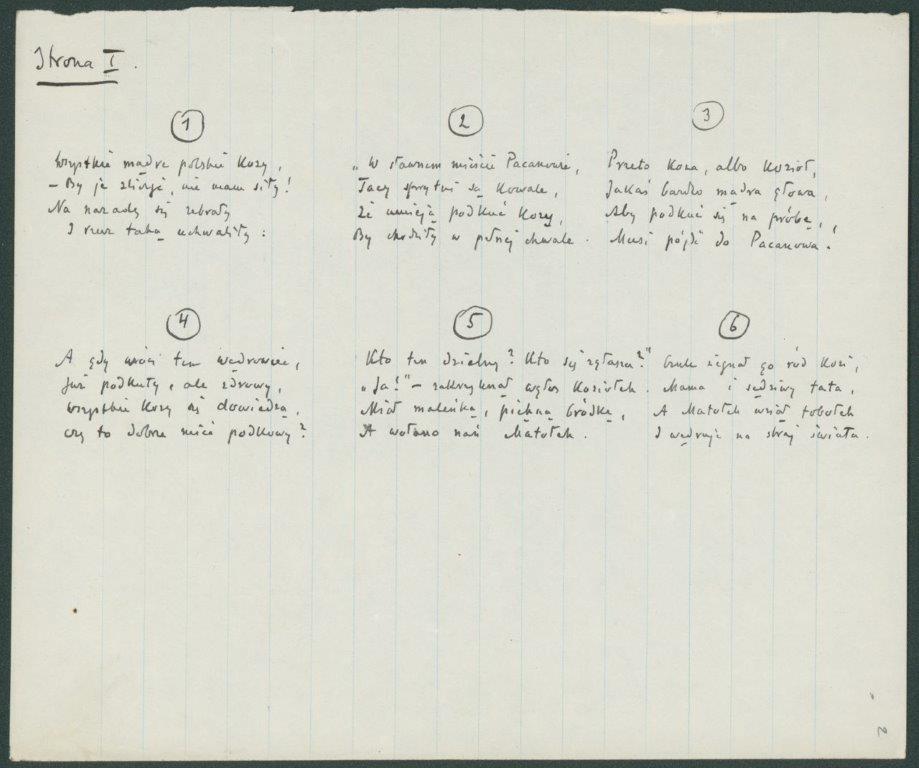 Strona I.
1
Wszystkie mądre polskie kozy,
– By je zliczyć, nie mam siły!
Na naradę się zebrały
I rzecz taką uchwaliły:
2
„W sławnem mieście Pacanowie,
Tacy sprytni są kowale,
Że umieją podkuć kozy,
By chodziły w pełnej chwale.
3
Przeto koza, albo kozioł,
Jakaś bardzo mądra głowa,
Aby podkuć się na próbę,
Musi pójść do Pacanowa.
4
A gdy wróci ten wędrowiec,
Już podkuty, ale zdrowy,
Wszystkie kozy się dowiedzą,
czy to dobrze mieć podkowy?
5
Kto ten dzielny? Kto się zgłasza?"
„Ja!" – zakrzyknął wgłos koziołek.
Miał maleńką, piękną bródkę,
A wołano nań Matołek.
6
Czule żegnał go ród kozi,
Mama i sędziwy tata,
A Matołek wziął tobołek
I wędruje na skraj świata.
2